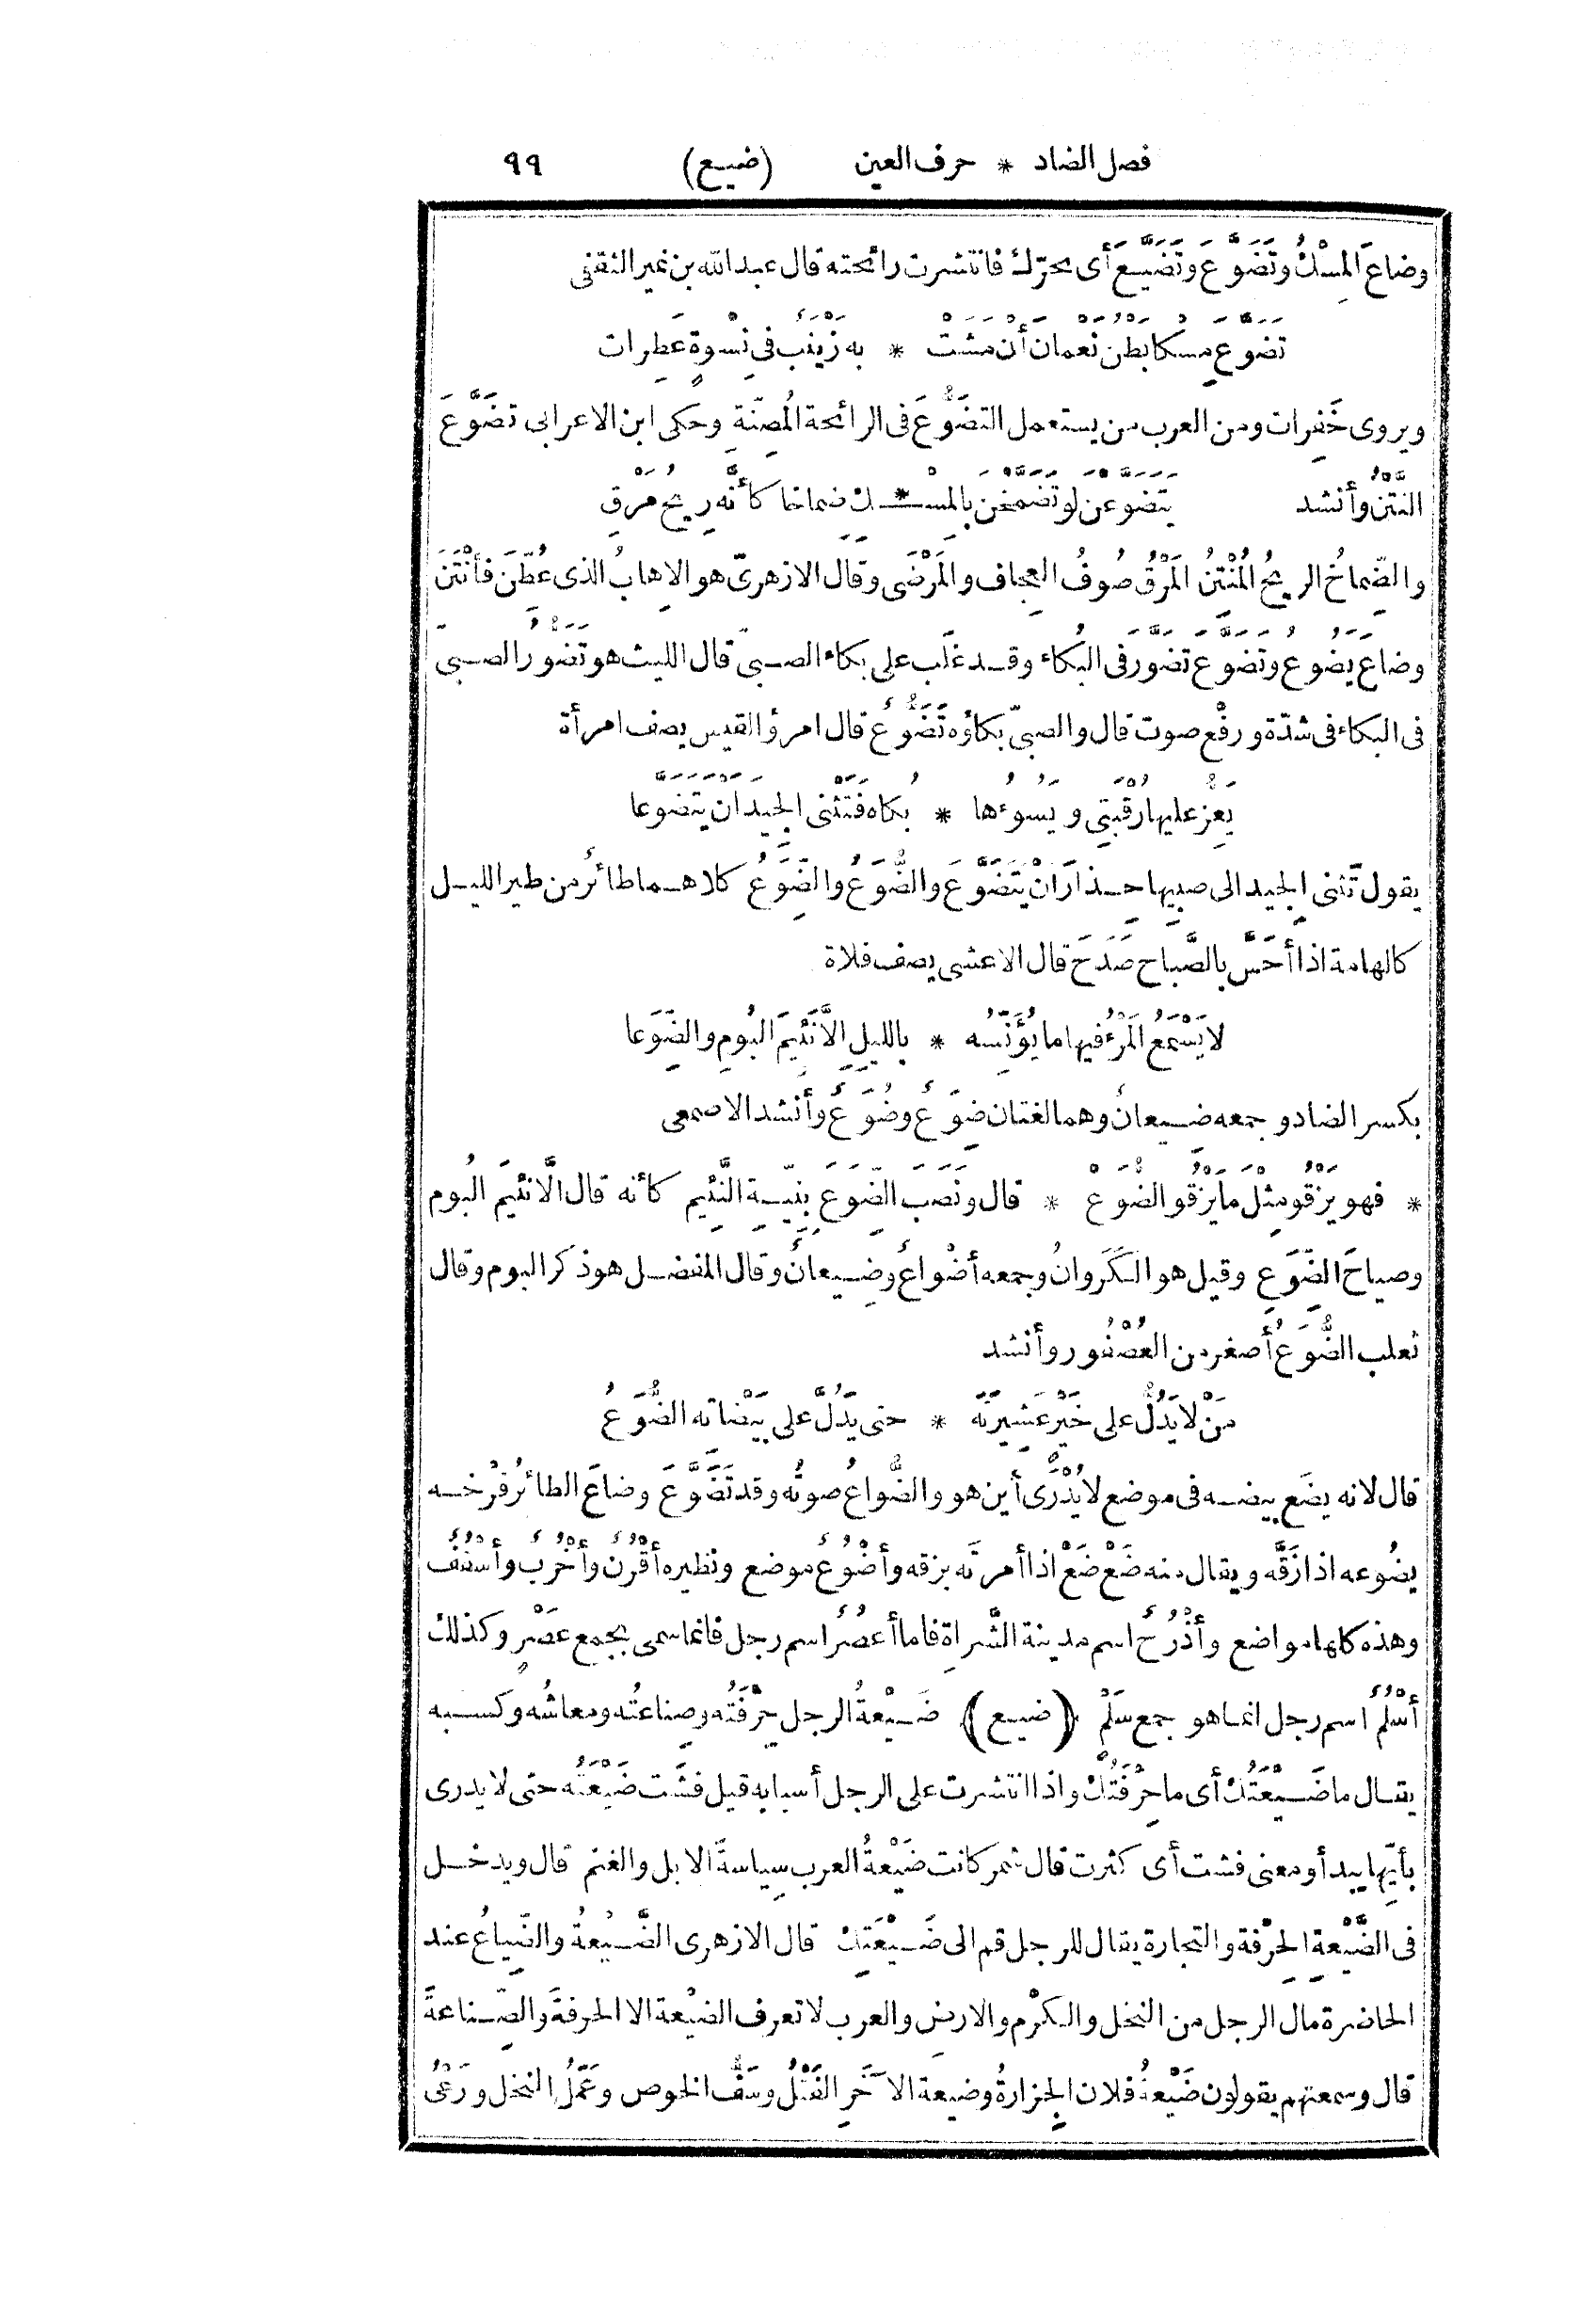 فصل الضاد * حرف العين (ضيع) ٩٩
وضاعَ المِسْكُ وتَضَوَّعَ وتَضَيَّعَ أى تحرّك فانتشرت رائحته قال عبد الله بن نمير الثقفى
تَضَوَّعَ مِسكًا بطنُ نَعْمانَ أنْ مَشَتْ * به زَيْنَبٌ فى نِسْوةٍ عَطِرات
ويروى خَفِرات ومن العرب من يستعمل التضَوُّعَ فى الرائحة المُصِنّةِ وحكى ابن الاعرابى تضَوَّعَ
النَّتْنُ وأنشد يَتَضَوَّعْنَ لو تَضَمَّخْنَ بالمِسْـ * ـك ضماخا كأنَّه رِيحُ مَرْقِ
والضِّماخُ الريحُ المُنْتِنُ المَرْقُ صُوفُ العِجاف والمَرْضَى وقال الازهرىّ هو الاِهابُ الذى عُطِّنَ فأنْتَنَ
وضاعَ يَضُوعُ وتَضَوَّعَ تضَوَّرَ فى البُكاء وقد غلَب على بكاء الصبىّ قال الليث هو تَضَوُّرُ الصبىّ
فى البكاء فى شدّة ورفْع صوت قال والصبىّ بكاؤه تَضَوُّعٌ قال امرؤ القيس يصف امرأة
يَعِزُّ عليها رُقْبَتِى ويَسُوءُها * بُكاه فَتَثْنى الجِيدَ انْ يَتَضَوَّعا
يقول تَثنى الجِيد الى صبيها حِذارَ انْ يَتَضَوَّعَ والضُّوَعُ والضِّوَعُ كلاهما طائرٌ من طير الليل
كالهامة اذا أحَسَّ بالصَّباح صَدَحَ قال الاعشى يصف فلاة
لا يَسْمَعُ المَرْءُ فيها ما يُؤَنِّسُه * بالليلِ الَّا نَئِيمَ البُومِ والضِّوَعا
بكسر الضاد وجمعه ضِيعانٌ وهما لغتان ضِوَعٌ وضُوَعٌ وأنشد الاصمعى
* فهو يَزْقُو مِثْلَ ما يَزْقُو الضُّوَعْ * قال ونَصَبَ الضِّوَعَ بِنِيّةِ النَّئِيمِ كأنه قال الَّا نئيمَ البُوم
وصياحَ الضِّوَعِ وقيل هو الكَرَوانُ وجمعه أضْواعٌ وضِيعانٌ وقال المفضل هو ذكر البوم وقال
ثعلب الضُّوَعُ أصغر من العُصْفُور وأنشد
مَنْ لا يَدُلُّ على خَيْرٍ عَشِيرَتَه * حتى يَدُلَّ على بَيْضاته الضُّوَعُ
قال لانه يضَع بيضه فى موضع لا يُدْرَى أين هو والضُّواعُ صوتُه وقد تَضَوَّعَ وضاعَ الطائرُ فرْخه
يضُوعه اذا زَقَّه ويقال منه ضَعْ ضَعْ اذا أمرتَه بزقه وأضْوُعٌ موضع ونظيره أقْرُنٌ وأخْرُبٌ وأسْقُفٌ
وهذه كلها مواضع وأذْرُحُ اسم مدينة الشَّراةِ فاما أعْصُرٌ اسم رجل فانما سمى بجمع عَصْرٍ وكذلك
أسْلُمٌ اسم رجل انما هو جمع سَلْمٍ (ضيع) ضَيْعةُ الرجل حِرْفَتُه وصِناعتُه ومعاشُه وكسبه
يقال ما ضَيْعَتُكَ أى ما حِرْفَتُكَ واذا انتشرت على الرجل أسبابه قيل فشَت ضَيْعَتُه حتى لا يدرى
بأيِّها يبدأ ومعنى فشت أى كثرت قال شمر كانت ضَيْعةُ العرب سِياسةَ الابل والغنم قال ويدخل
فى الضَّيْعةِ الحِرْفة والتجارة يقال للرجل قم الى ضَيْعَتِكَ قال الازهرى الضَّيْعةُ والضِّياعُ عند
الحاضرة مال الرجل من النخل والكَرْم والارض والعرب لا تعرف الضيْعة الا الحرفةَ والصِّناعةَ
قال وسمعتهم يقولون ضَيْعةُ فلان الجِزارةُ وضيعة الآخَرِ الفَتْلُ وسَفُّ الخوص وعَمَلُ النخل ورَعْىُ